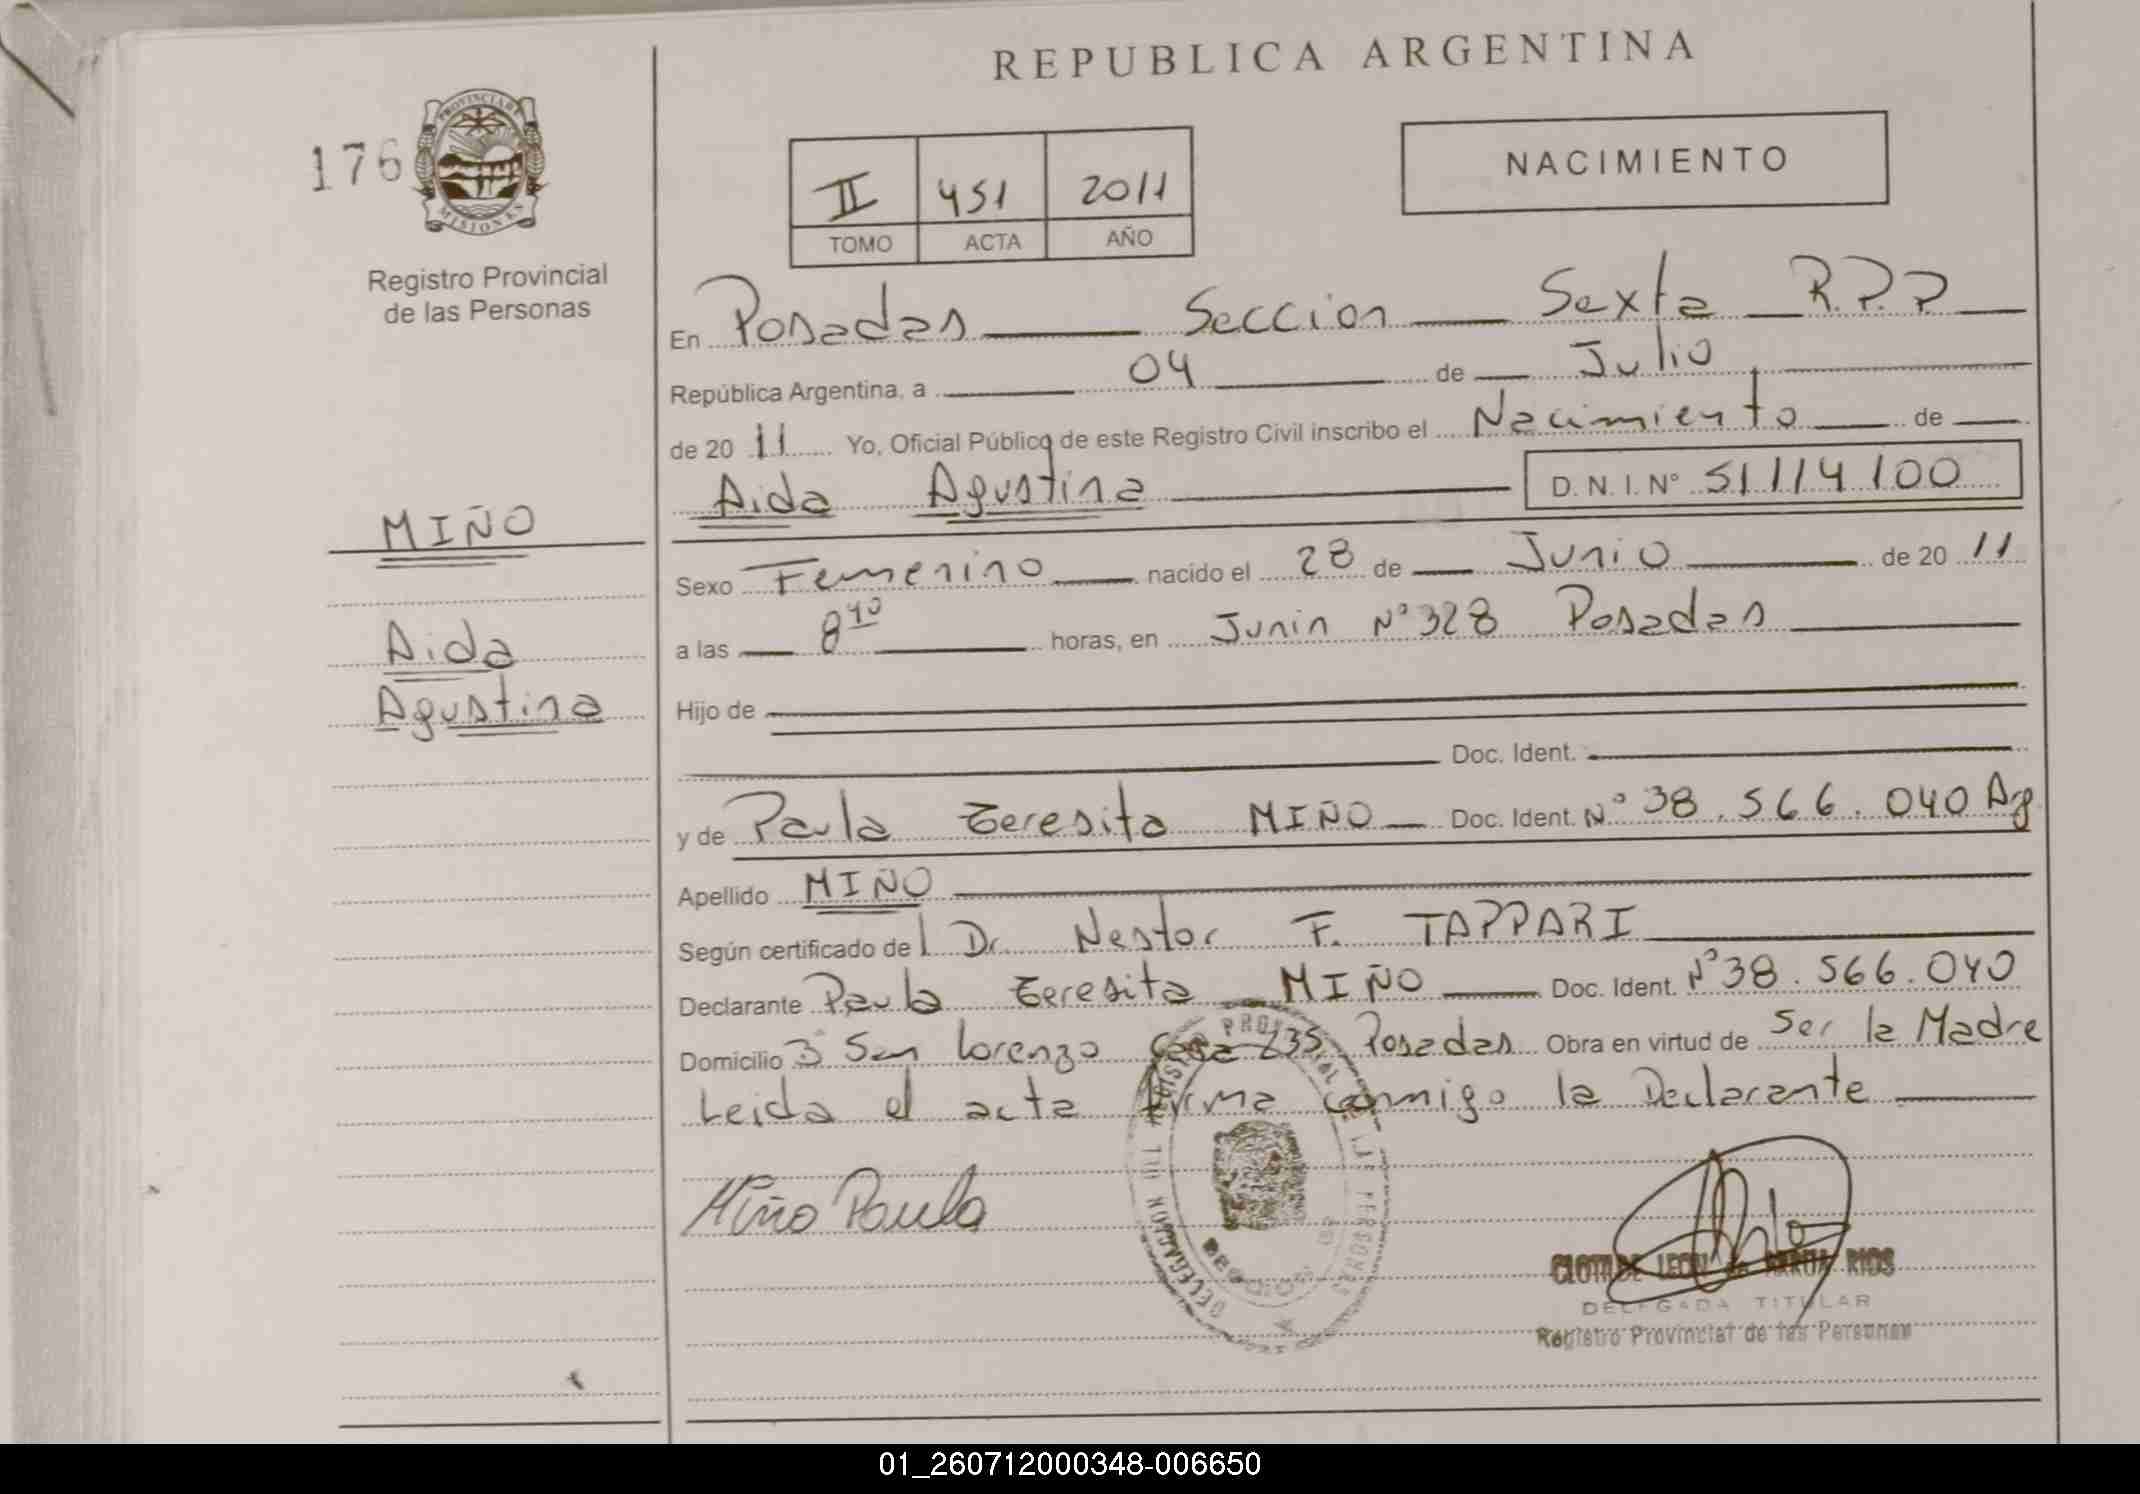 REPUBLICA ARGENTINA
176
PROVINCIA DE
MISIONES
Registro Provincial
de las Personas
II 451 2011
TOMO ACTA AÑO
NACIMIENTO
En Posadas Seccion Sexta R.P.P
República Argentina, a 04 de Julio
de 2011 Yo, Oficial Público de este Registro Civil inscribo el Nacimiento de
Aida Agustina D.N.I.Nº 51114100
MIÑO
Aida
Agustina
Sexo Femenino nacido el 28 de Junio de 2011
a las 8 40 horas, en Junin Nº 328 Posadas
Hijo de
Doc. Ident.
y de Paula Teresita MIÑO Doc. Ident. Nº 38.566.040 Arg
Apellido MIÑO
Según certificado del Dr. Nestor F. TAPPARI
Declarante Paula Teresita MIÑO Doc. Ident. Nº 38.566.040
Domicilio Bº San Lorenzo Casa 235 Posadas Obra en virtud de Ser la Madre
Leida el acta firma conmigo la Declarante
Miño Paula
CLOTILDE LEON de RIOS
DELEGADA TITULAR
Registro Provincial de las Personas
01_260712000348-006650